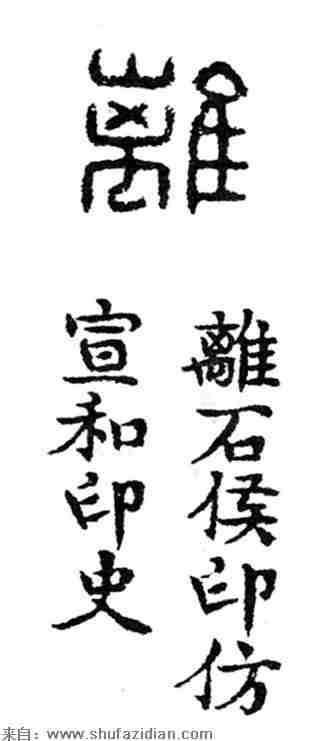 離
離石侯印仿
宣和印史
来自：www.shufazidian.com